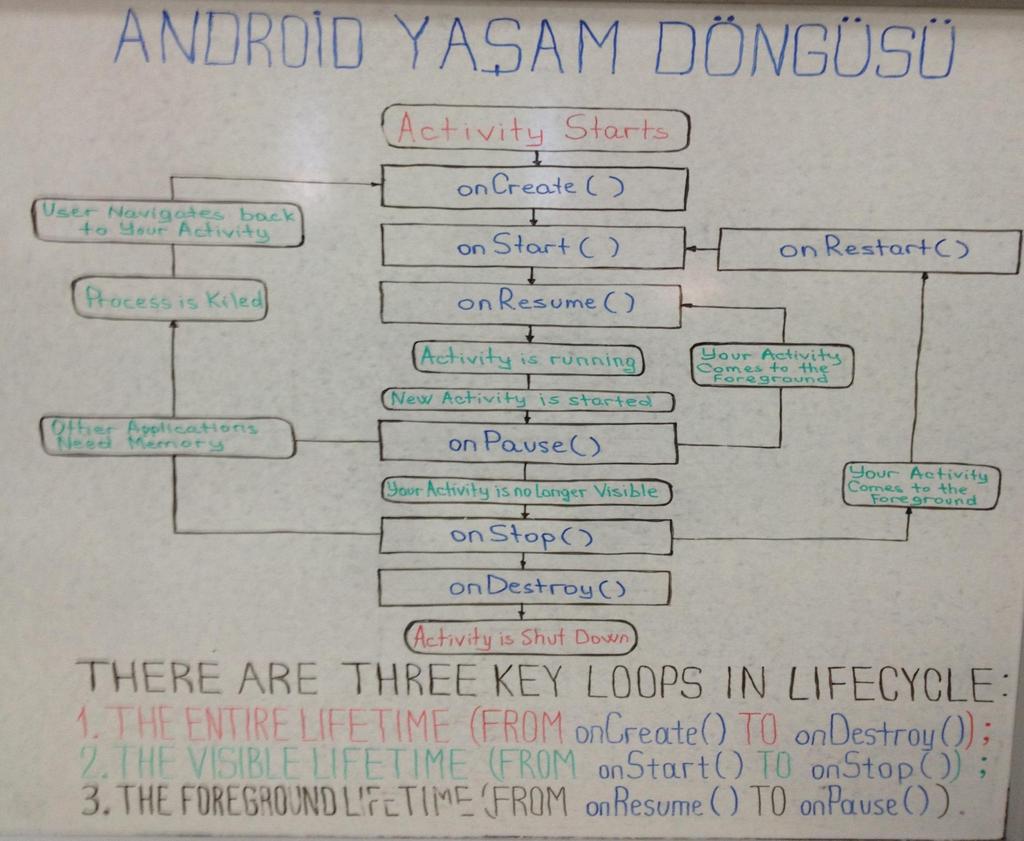 ANDROİD YAŞAM DÖNGÜSÜ
Activity Starts
onCreate ( )
User Navigates back
to Your Activity
onStart ( )
onRestart ( )
Process is Kiled
onResume ( )
Activity is running
Your Activity
Comes to the
Foreground
New Activity is started
Other Applications
Need Memory
onPause ( )
Your Activity is no Longer Visible
Your Activity
Comes to the
Foreground
onStop ( )
onDestroy ( )
Activity is Shut Down
THERE ARE THREE KEY LOOPS IN LIFECYCLE:
1. THE ENTIRE LIFETIME (FROM onCreate() TO onDestroy());
2. THE VISIBLE LIFETIME (FROM onStart() TO onStop());
3. THE FOREGROUND LIFETIME (FROM onResume() TO onPause()).